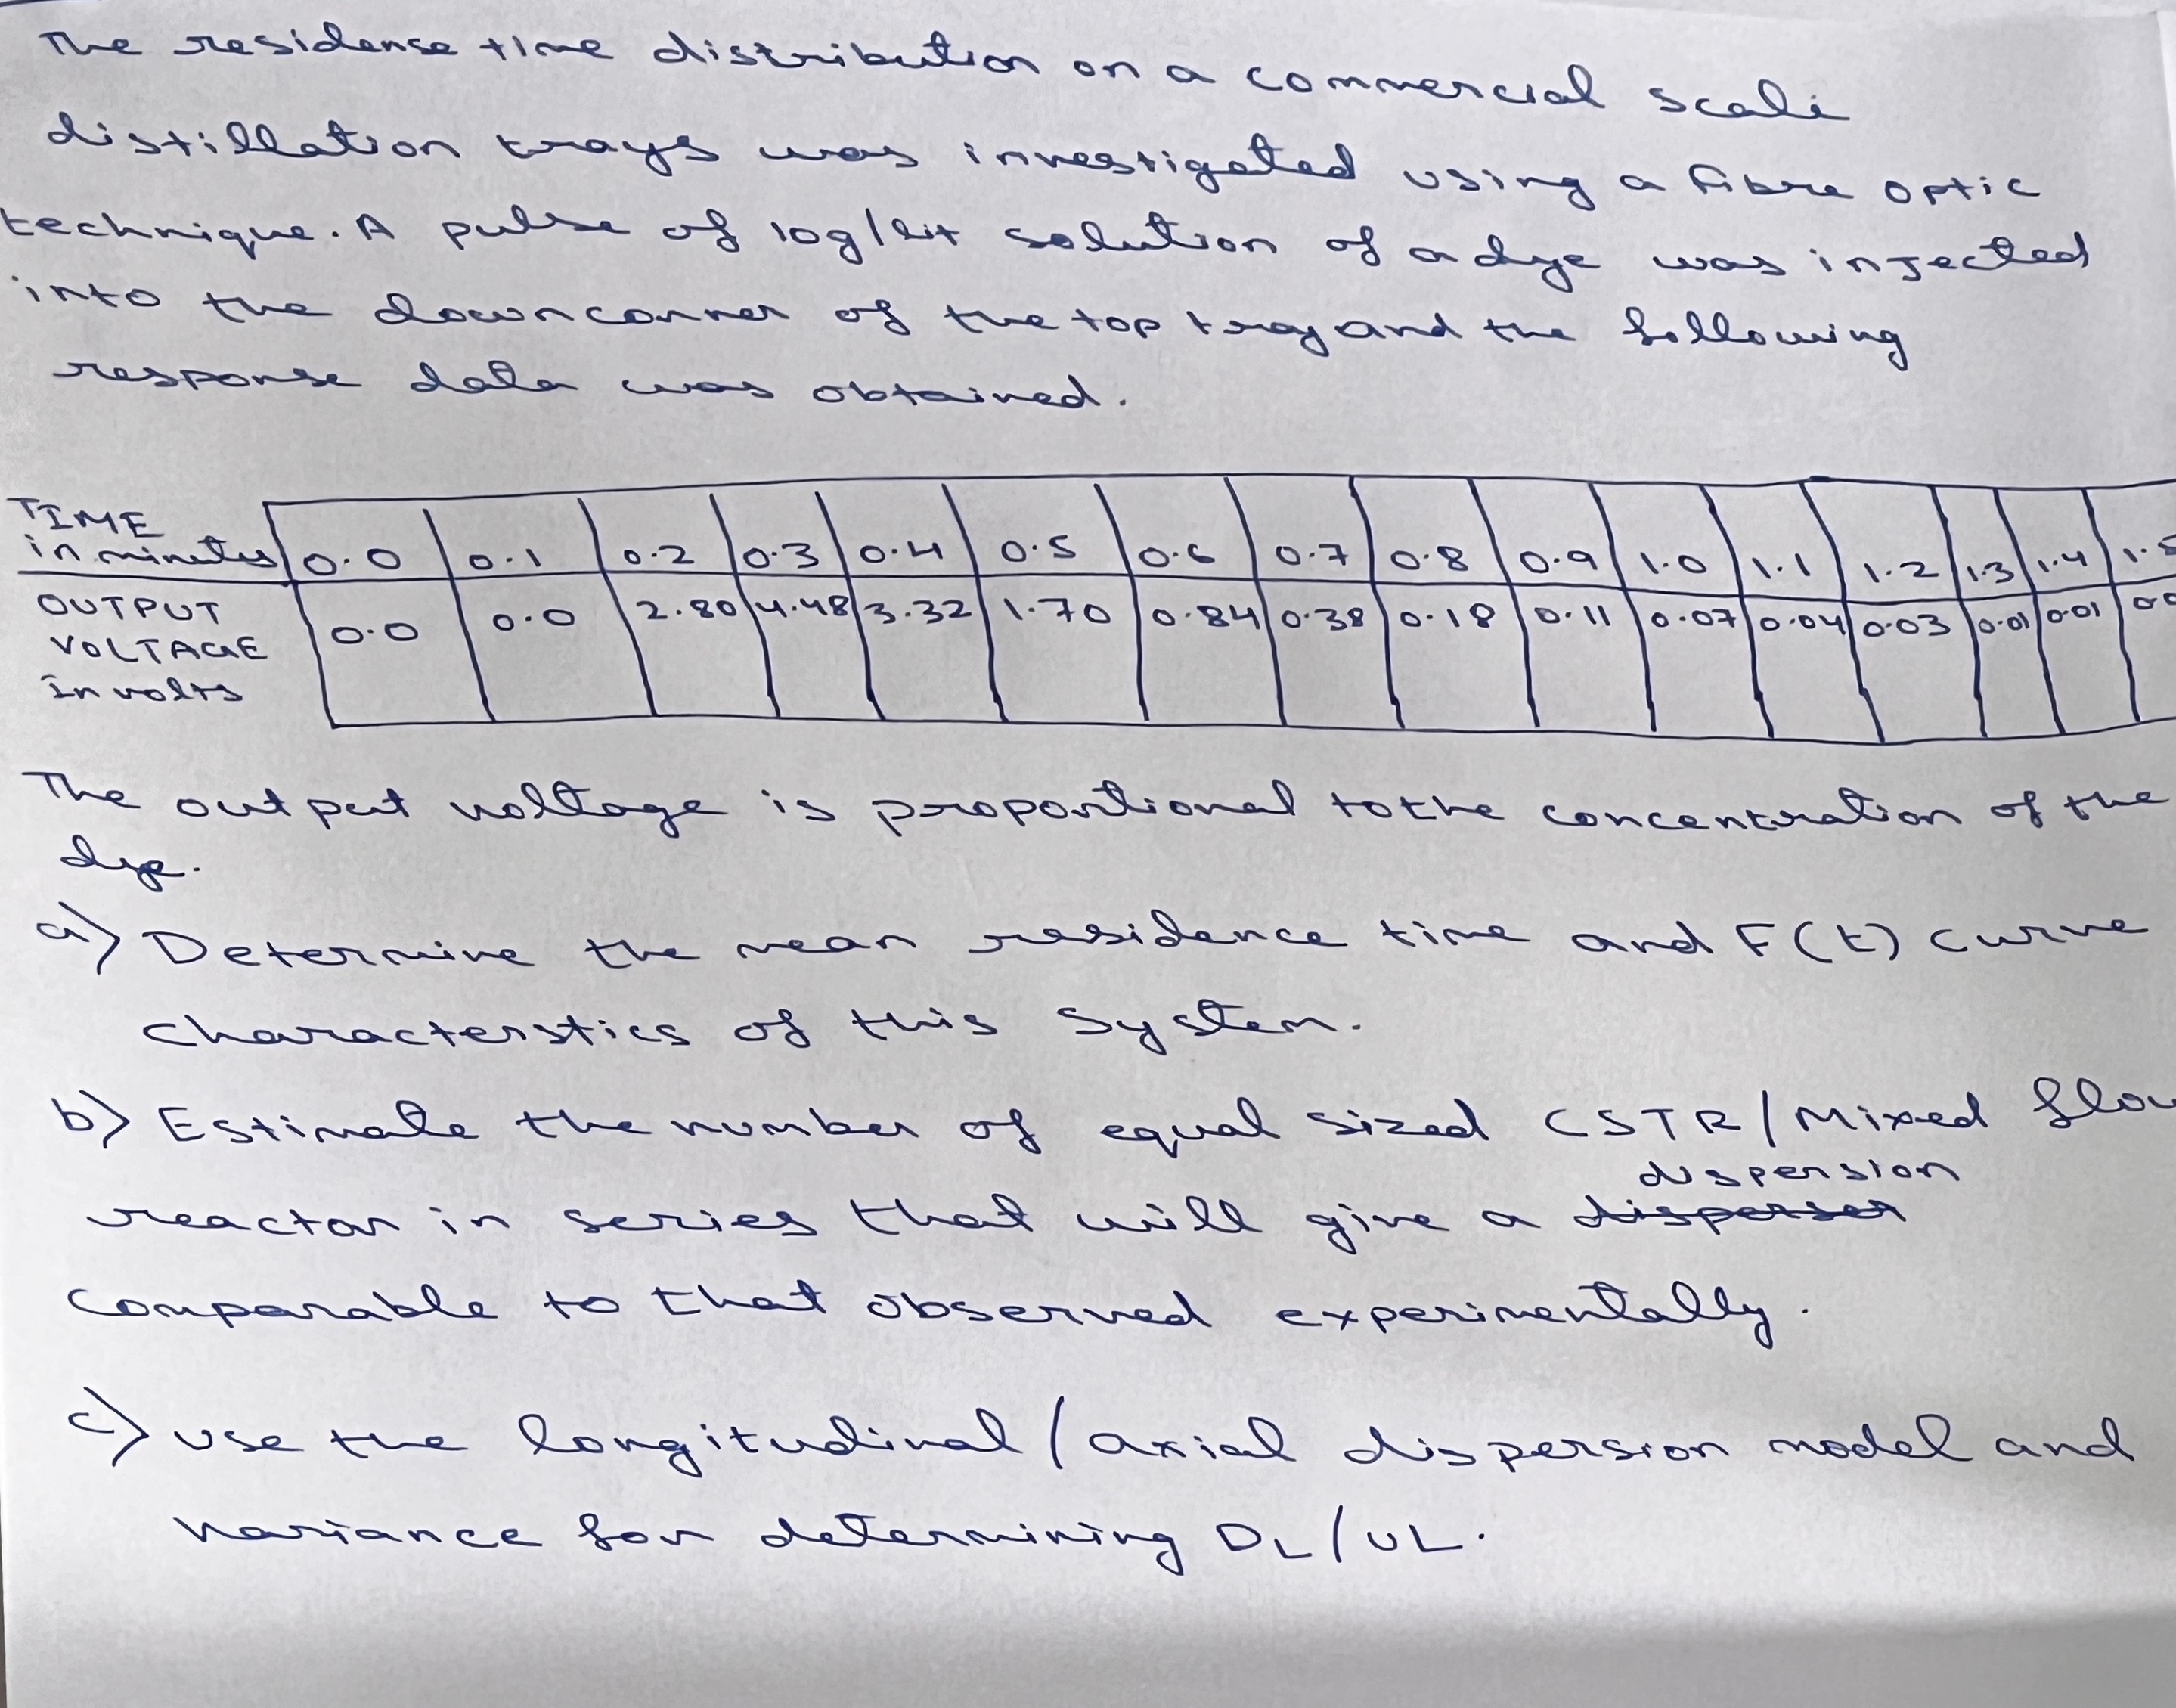 The residense time distribution on a commercial scale
distillation trays was investigated using a fibre optic
technique. A pulse of 10g/lit solution of a dye was injected
into the downconner of the top tray and the following
response data was obtained.
TIME
in minutes 0.0 0.1 0.2 0.3 0.4 0.5 0.6 0.7 0.8 0.9 1.0 1.1 1.2 1.3 1.4 1.5
OUTPUT
VOLTAGE
in volts 0.0 0.0 2.80 4.48 3.32 1.70 0.84 0.38 0.18 0.11 0.07 0.04 0.03 0.01 0.01
The output voltage is proportional to the concentration of the
dye.
a) Determine the mean residence time and F(t) curve
characterstics of this system.
b) Estimate the number of equal sized CSTR/Mixed flow
dispersion
reactor in series that will give a
comparable to that observed experimentally.
c) use the longitudinal/axial dispersion model and
variance for determining DL/UL.